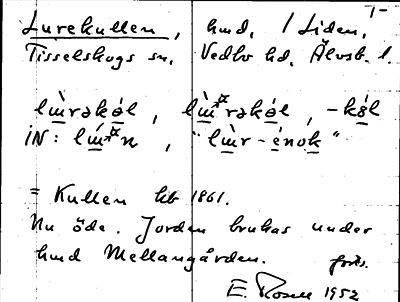 1-
Lurekullen, hmd. / Liden,
Tisselskogs sn, Vedbo hd, Älvsb. l.
lɯ̀rəkəl, lɯ̀rəkəl, -kəl
IN: lɯ́n, "lɯ̀r-énok"
= Kullen 1861.
Nu öde. Jorden brukas under
hmd Mellangården. forts.
E. Rosell 1952